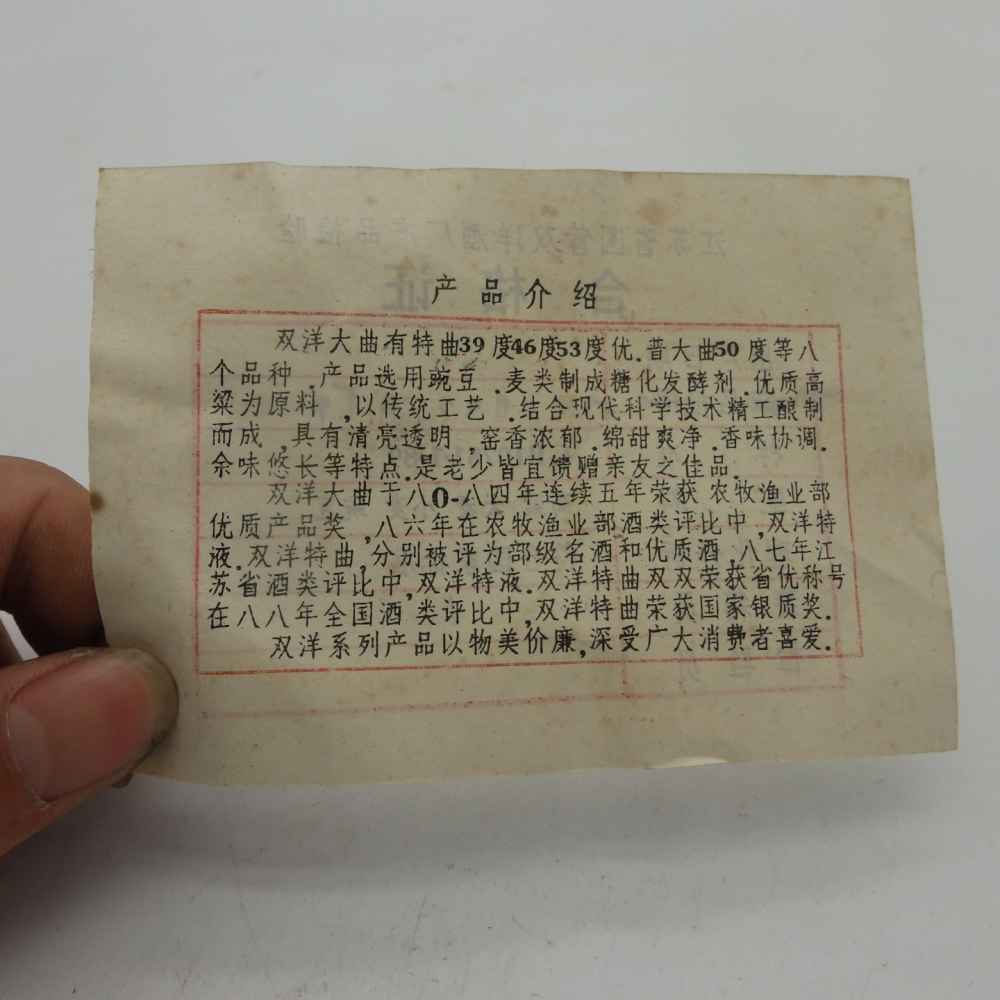 产品介绍
双洋大曲有特曲39度46度53度优.普大曲50度等八
个品种.产品选用豌豆.麦类制成糖化发酵剂.优质高
粱为原料,以传统工艺.结合现代科学技术精工酿制
而成,具有清亮透明,窖香浓郁.绵甜爽净.香味协调.
余味悠长等特点.是老少皆宜馈赠亲友之佳品.
双洋大曲于八0-八四年连续五年荣获农牧渔业部
优质产品奖,八六年在农牧渔业部酒类评比中,双洋特
液.双洋特曲,分别被评为部级名酒和优质酒,八七年江
苏省酒类评比中,双洋特液.双洋特曲双双荣获省优称号
在八八年全国酒类评比中,双洋特曲荣获国家银质奖.
双洋系列产品以物美价廉,深受广大消费者喜爱.
江苏省国营双洋酒厂产品检验
合格证